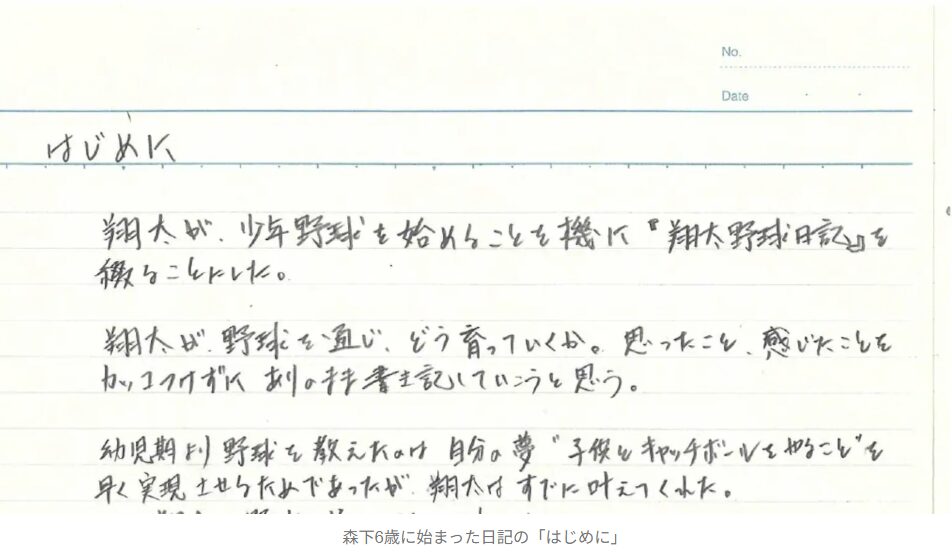 No.
Date
はじめに
翔太が、少年野球を始めることを機に『翔太野球日記』を
綴ることにした。
翔太が、野球を通じ、どう育っていくか。思ったこと、感じたことを
カッコつけずに ありのまま書き記していこうと思う。
幼児期より野球を教えたのは 自分の夢“子供とキャッチボールをやること”を
早く実現させるためであったが、翔太はすでに叶えてくれた。
森下6歳に始まった日記の「はじめに」